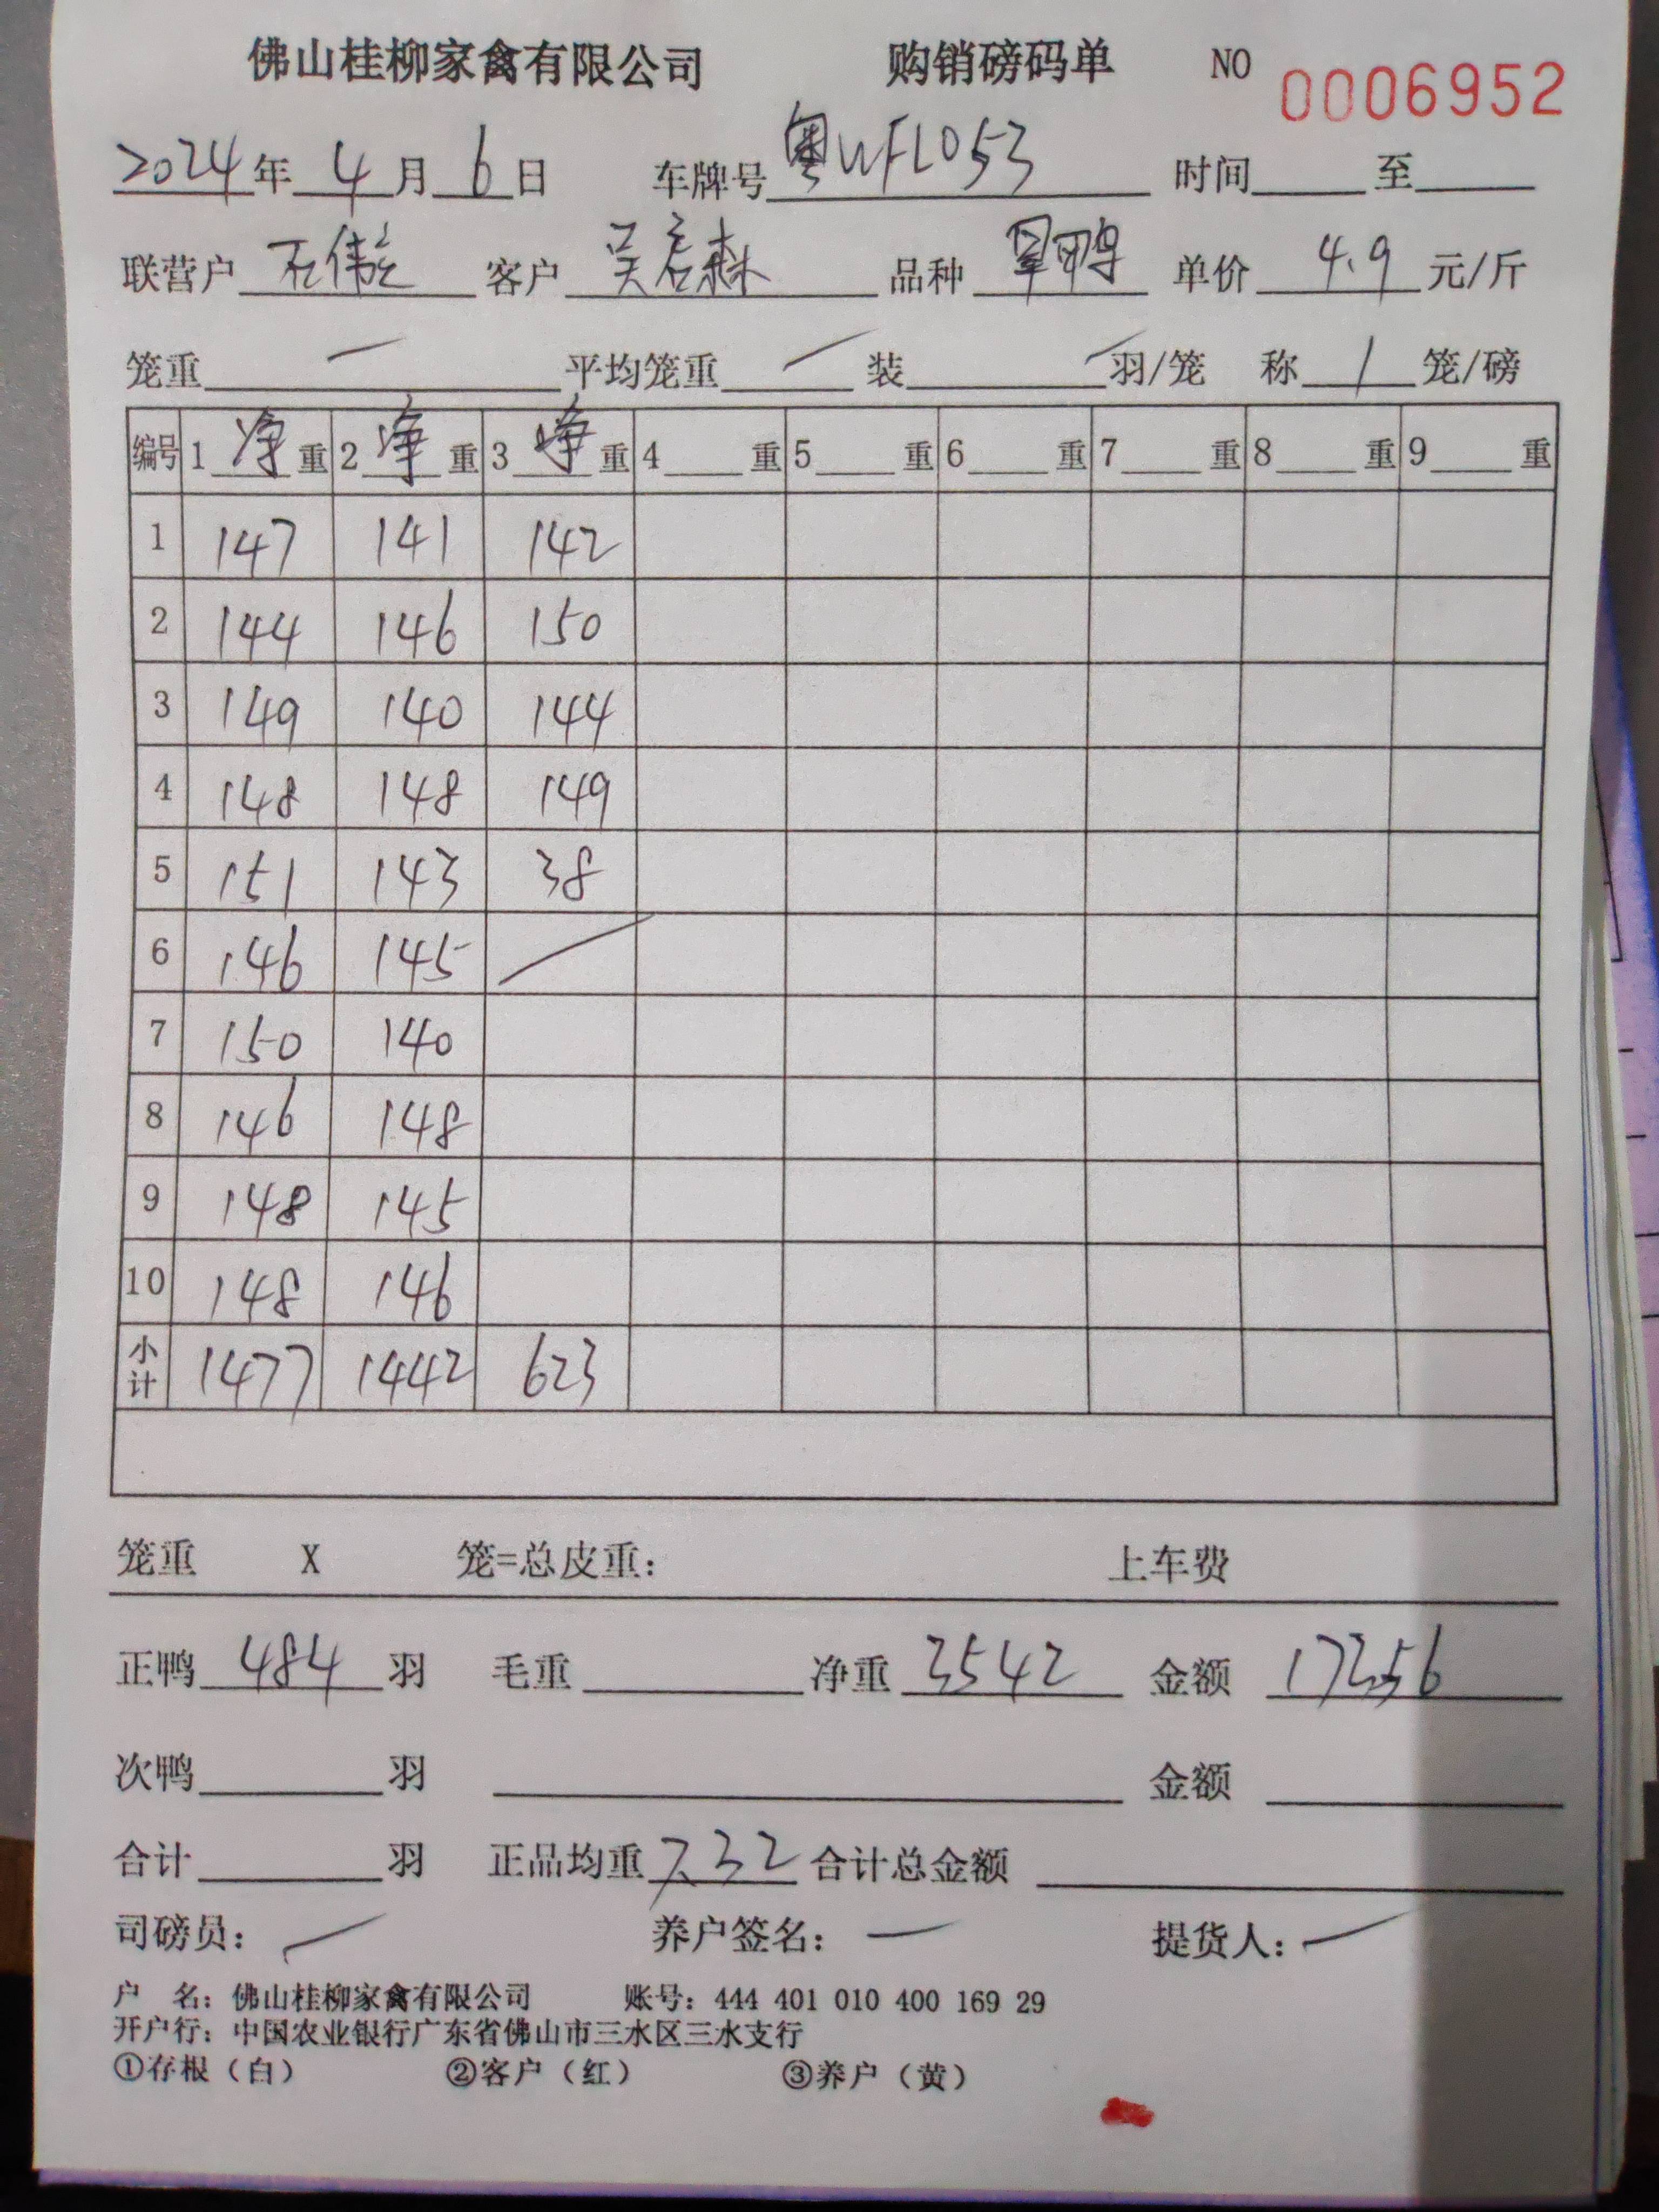 佛山桂柳家禽有限公司 购销磅码单 NO 0006952
2024年 4月 6日 车牌号 粤WFL053 时间 至
联营户 石伟 客户 吴 森 品种 鸭 单价 4.9 元/斤
笼重 一 平均笼重 装 羽/笼 称 1 笼/磅
编号 1 净 重 2 净 重 3 净 重 4 重 5 重 6 重 7 重 8 重 9 重
1 147 141 142
2 144 146 150
3 149 140 144
4 148 148 149
5 151 143 38
6 146 145
7 150 140
8 146 148
9 148 145
10 148 146
小计 1477 1442 623
笼重 X 笼=总皮重: 上车费
正鸭 484 羽 毛重 净重 3542 金额 17356
次鸭 羽 金额
合计 羽 正品均重 7.32 合计总金额
司磅员: 养户签名: 提货人:
户 名: 佛山桂柳家禽有限公司 账号: 444 401 010 400 169 29
开户行: 中国农业银行广东省佛山市三水区三水支行
①存根（白） ②客户（红） ③养户（黄）